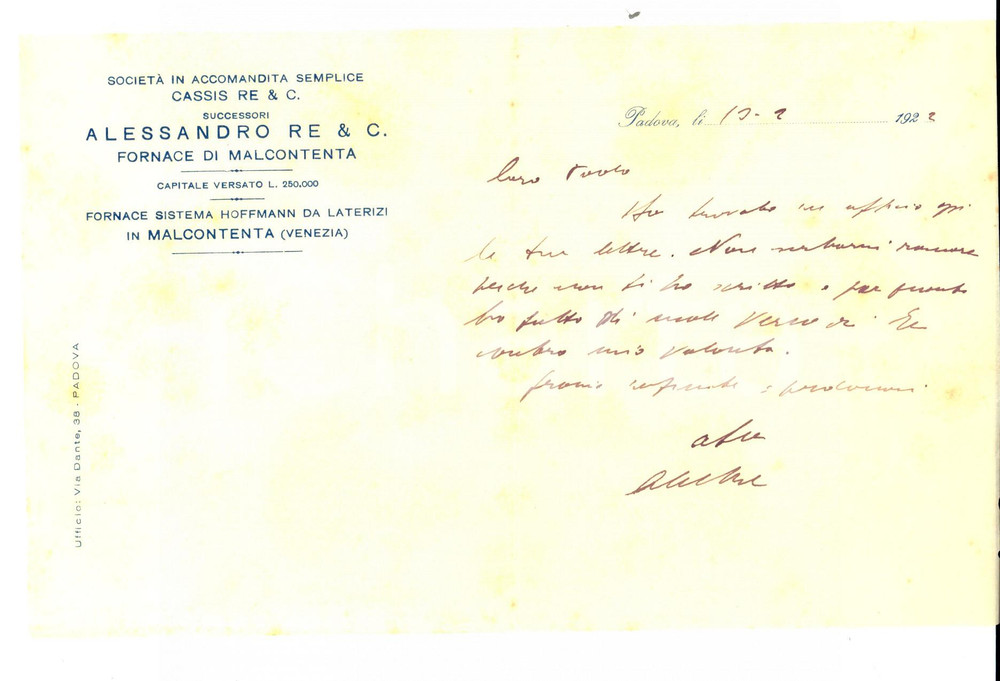 SOCIETÀ IN ACCOMANDITA SEMPLICE
CASSIS RE & C.
SUCCESSORI
ALESSANDRO RE & C.
FORNACE DI MALCONTENTA
CAPITALE VERSATO L. 250.000
FORNACE SISTEMA HOFFMANN DA LATERIZI
IN MALCONTENTA (VENEZIA)
Ufficio: Via Dante, 38 - PADOVA
Padova, li 13-2 1922
Caro Paolo
Ho trovato in ufficio oggi
le tue lettere. Non serbarmi rancore
perché non ti ho scritto e per quanto
ho fatto di male verso di te
contro mia volontà.